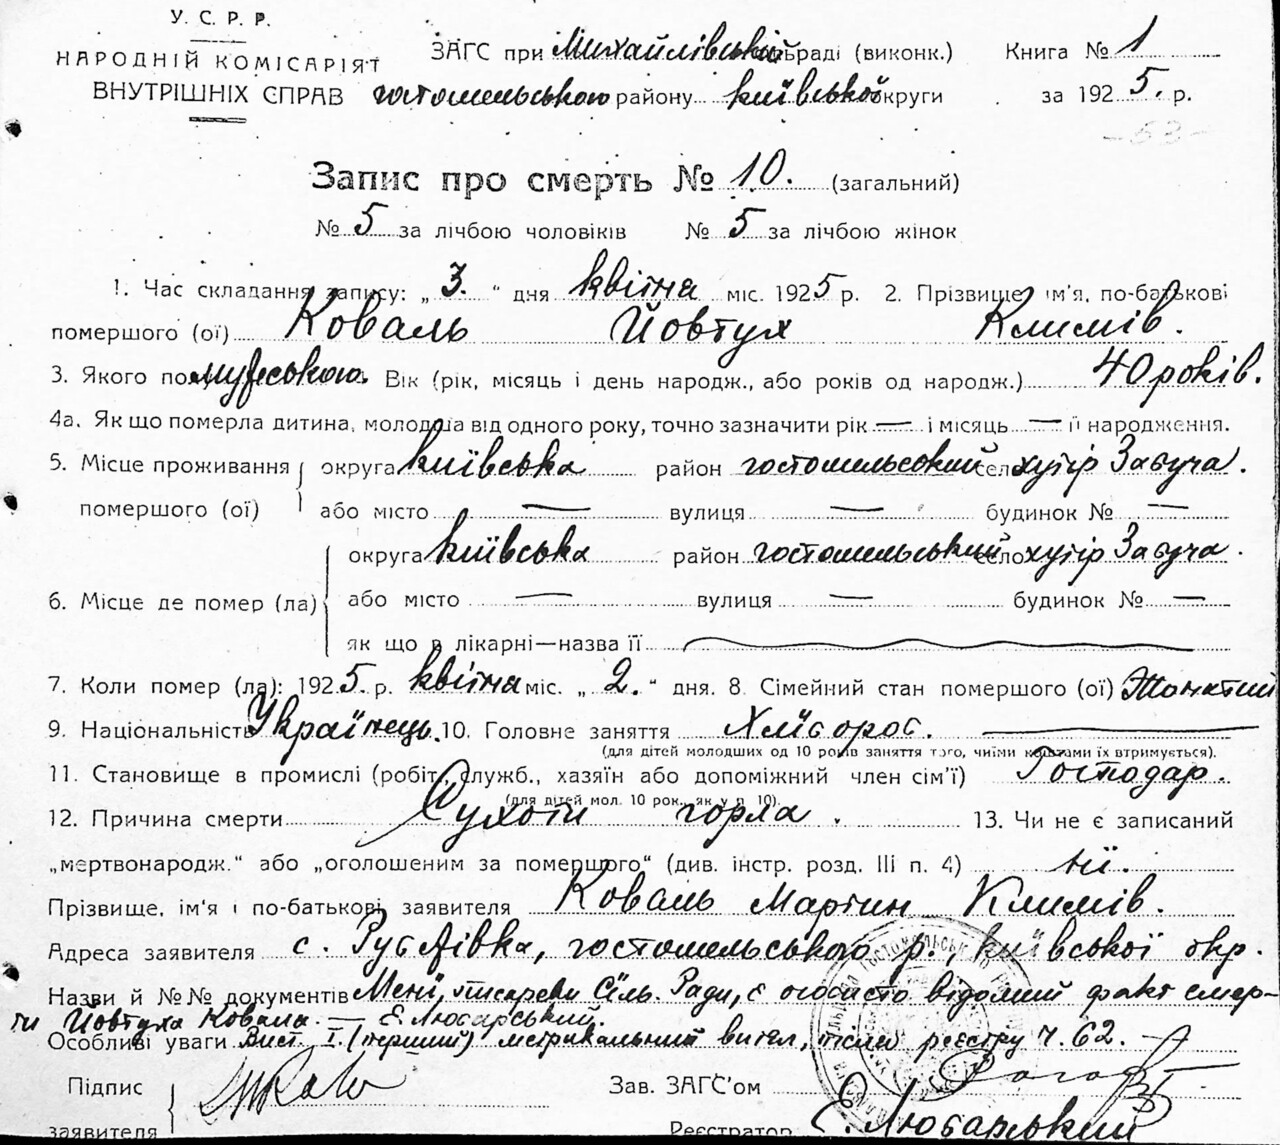 У. С. Р. Р.
НАРОДНІЙ КОМІСАРІЯТ
ВНУТРІШНІХ СПРАВ
ЗАГС при Михайлівській сільраді (виконк.)
Книга № 1
гостомельського району київської округи
за 1925. р.
- 53 -
Запис про смерть № 10. (загальний)
№ 5 за лічбою чоловіків № 5 за лічбою жінок
1. Час складання запису: „ 3. “ дня квітня міс. 1925 р. 2. Прізвище, ім'я, по-батькові
помершого (ої) Коваль Йовтух Климів.
3. Якого полу мужеського. Вік (рік, місяць і день народж., або років од народж.) 40 років.
4а. Як що померла дитина, молодша від одного року, точно зазначити рік — і місяць — її народження.
5. Місце проживання округа київська район гостомельський село хутір Забуча.
помершого (ої) або місто — вулиця — будинок № —
округа київська район гостомельський село хутір Забуча.
6. Місце де помер (ла) або місто — вулиця — будинок № —
як що в лікарні—назва її
7. Коли помер (ла): 1925. р. квітня міс. „ 2. “ дня. 8. Сімейний стан помершого (ої) Жонатий
9. Національність Українець. 10. Головне заняття Хлібороб.
(для дітей молодших од 10 років заняття того, чиїми коштами їх втримується).
11. Становище в промислі (робіт., служб., хазяїн або допоміжний член сім'ї) Господар.
(для дітей мол. 10 рок., як у п. 10).
12. Причина смерти Сухоти горла. 13. Чи не є записаний
„мертвонародж.“ або „оголошеним за помершого“ (див. інстр. розд. III п. 4) ні.
Прізвище, ім'я і по-батькові заявителя Коваль Мартин Климів.
Адреса заявителя с. Рубежівка, гостомельського р., київської окр.
Назви й №№ документів Мені, писареви Сіль. Ради, є особисто відомий факт смер-
ти Йовтуха Коваля. — Є. Любарський.
Особливі уваги Вид. I. (перший) метрикальний витяг, після реєстру ч. 62.
Підпис
заявителя
Зав. ЗАГС'ом
Реєстратор Є. Любарський